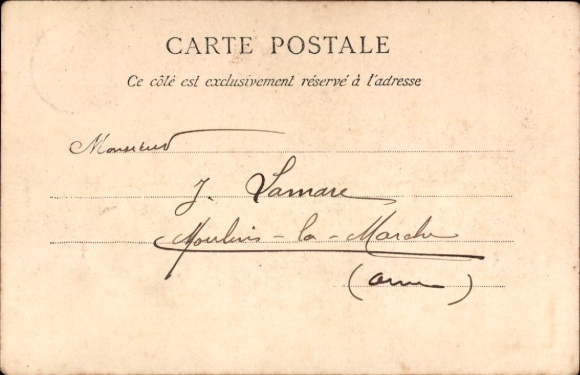 CARTE POSTALE
Ce côté est exclusivement réservé à l'adresse
Monsieur
J. Lamare
Moulins-la-Marche
(Orne)